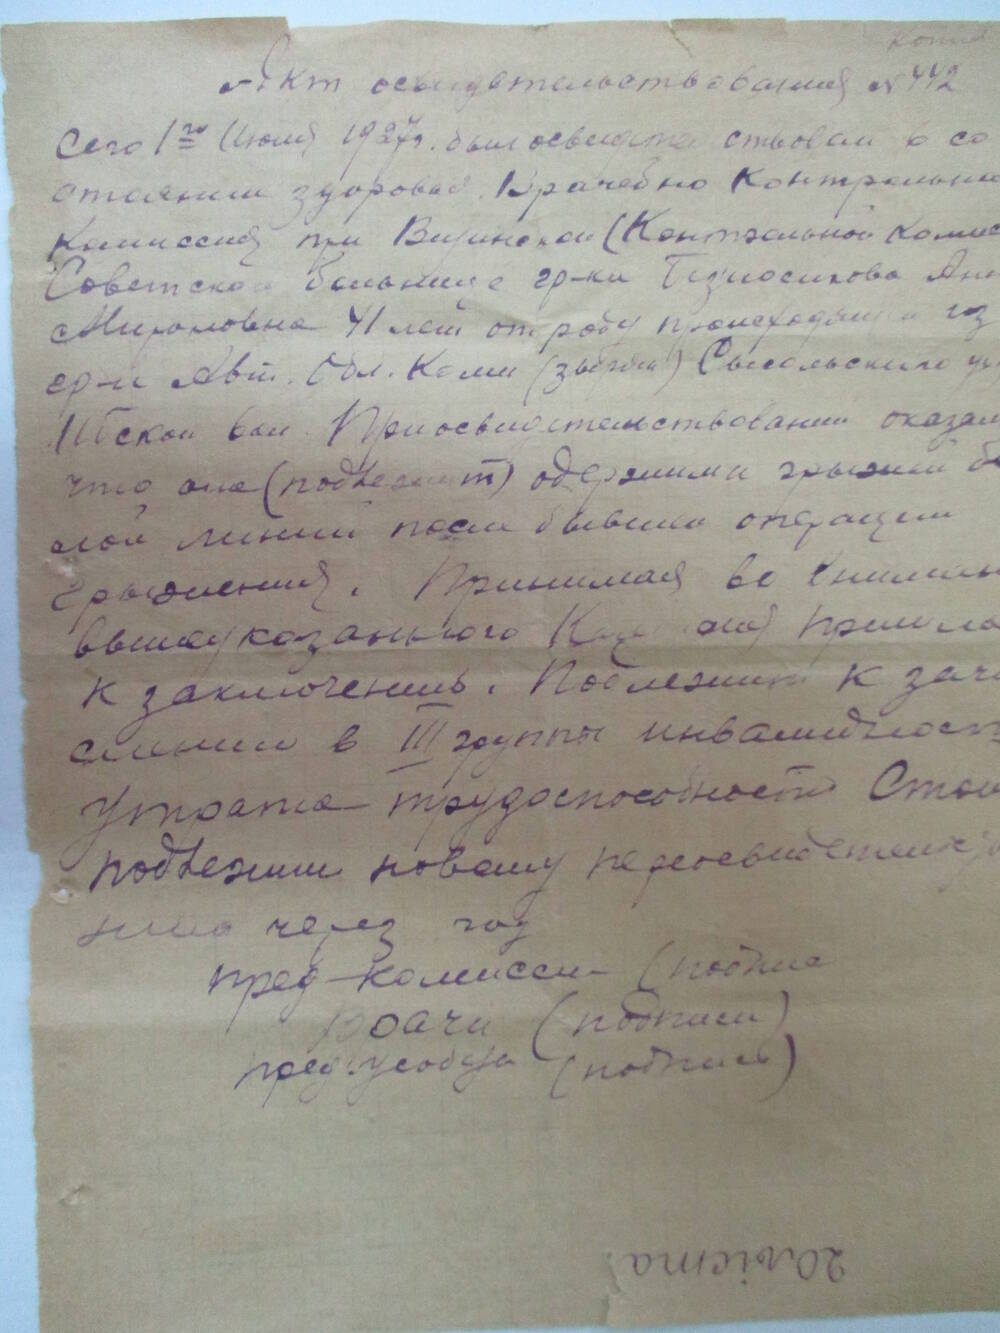 Копия
Акт освидетельствования № 442
Сего 1го Июля 1927г. был освидетельствован в со
стоянии здоровья Врачебно Контрольно
Комиссия при Визинской (Контрольной Комис
Советской больнице гр-ки Безносикова Ан
Мироновна 41 лет от роду происходящ из
гр-н Авт. Обл. Коми (зырян) Сысольского у
Ибской вол. При освидетельствовании оказал
что она (подлежит) одержима грыжей бе
лой линии после бывшей операции
грыжесечения. Принимая во внимани
вышеуказанного Комиссия пришла
к заключению. Подлежит к зачи
слению в III группы инвалидност
Утрата трудоспособности Стой
подлежит новому переосвидетельс
через год
пред-комиссии (подпис
Врачи (подписи)
пред. (подпись)
20 листа